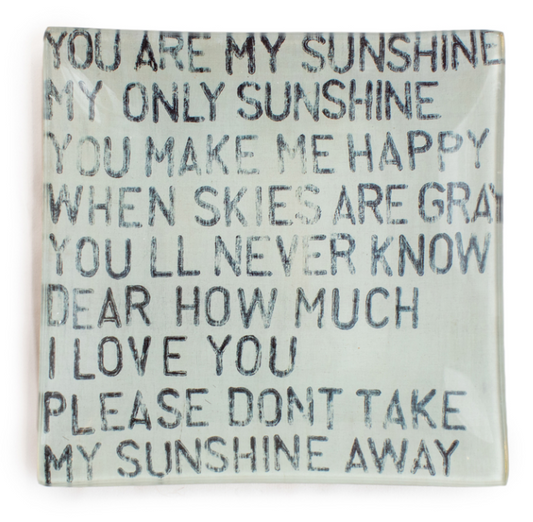 YOU ARE MY SUNSHINE
MY ONLY SUNSHINE
YOU MAKE ME HAPPY
WHEN SKIES ARE GRAY
YOU LL NEVER KNOW
DEAR HOW MUCH
I LOVE YOU
PLEASE DONT TAKE
MY SUNSHINE AWAY